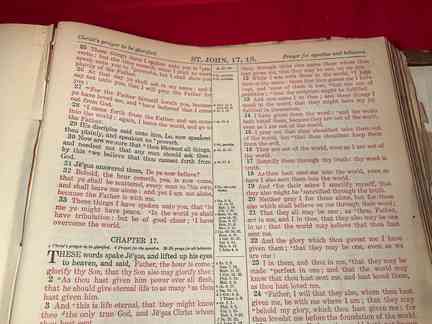 Christ's prayer to be glorified,
ST. JOHN, 17, 18.
Prayer for apostles and believers.
25 These things have I spoken unto you in
but the time cometh, when I shall no more
speak unto you in proverbs, but I shall shew you
plainly of the Father.
26 At that day ye shall ask in my name: and I
say not unto you, that I will pray the Father for
you:
27 For the Father himself loveth you, because
ye have loved me, and have believed that I came
out from God.
28 I came forth from the Father, and am come
into the world: again, I leave the world, and go to
the Father.
29 His disciples said unto him, Lo, now speakest
thou plainly, and speakest no proverb.
30 Now are we sure that thou knowest all things,
and needest not that any man should ask thee:
by this we believe that thou camest forth from
God.
31 Jē'sus answered them, Do ye now believe?
32 Behold, the hour cometh, yea, is now come,
that ye shall be scattered, every man to his own,
and shall leave me alone: and yet I am not alone,
because the Father is with me.
33 These things I have spoken unto you, that in
me ye might have peace. In the world ye shall
have tribulation: but be of good cheer; I have
overcome the world.
CHAPTER 17.
1 Christ's prayer to be glorified,
THESE words spake Jē'sus, and lifted up his eyes
to heaven, and said, Father, the hour is come;
glorify thy Son, that thy Son also may glorify thee:
2 As thou hast given him power over all flesh,
that he should give eternal life to as many as thou
hast given him.
3 And this is life eternal, that they might know
thee the only true God, and Jē'sus Christ whom
thou hast sent.
13 And now come I to thee; and these things I
speak in the world, that they might have my joy
fulfilled in themselves.
14 I have given them thy word; and the world
hath hated them, because they are not of the world,
even as I am not of the world.
15 I pray not that thou shouldest take them out
of the world, but that thou shouldest keep them
from the evil.
16 They are not of the world, even as I am not of
the world.
17 Sanctify them through thy truth: thy word is
truth.
18 As thou hast sent me into the world, even so
have I also sent them into the world.
19 And for their sakes I sanctify myself, that
they also might be sanctified through the truth.
20 Neither pray I for these alone, but for them
also which shall believe on me through their word;
21 That they all may be one; as thou, Father,
art in me, and I in thee, that they also may be one
in us: that the world may believe that thou hast
sent me.
22 And the glory which thou gavest me I have
given them; that they may be one, even as we
are one:
23 I in them, and thou in me, that they may be
made perfect in one; and that the world may
know that thou hast sent me, and hast loved them,
as thou hast loved me.
24 Father, I will that they also, whom thou hast
given me, be with me where I am; that they may
behold my glory, which thou hast given me: for
thou lovedst me before the foundation of the world.